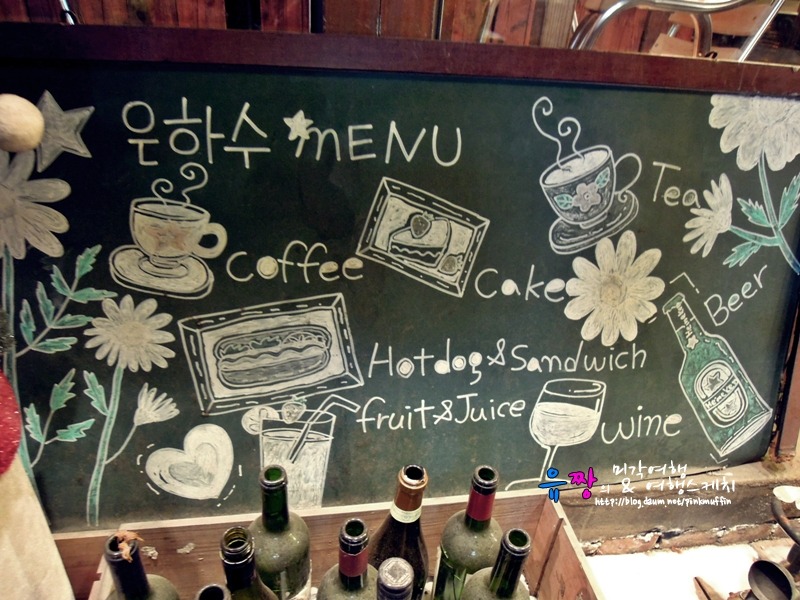 은하수 MENU
Coffee
Tea
Cake
Beer
Hotdog & Sandwich
fruit & Juice
wine
Heineken
유짱의 미각여행 & 여행스케치
http://blog.daum.net/pinkmuffin